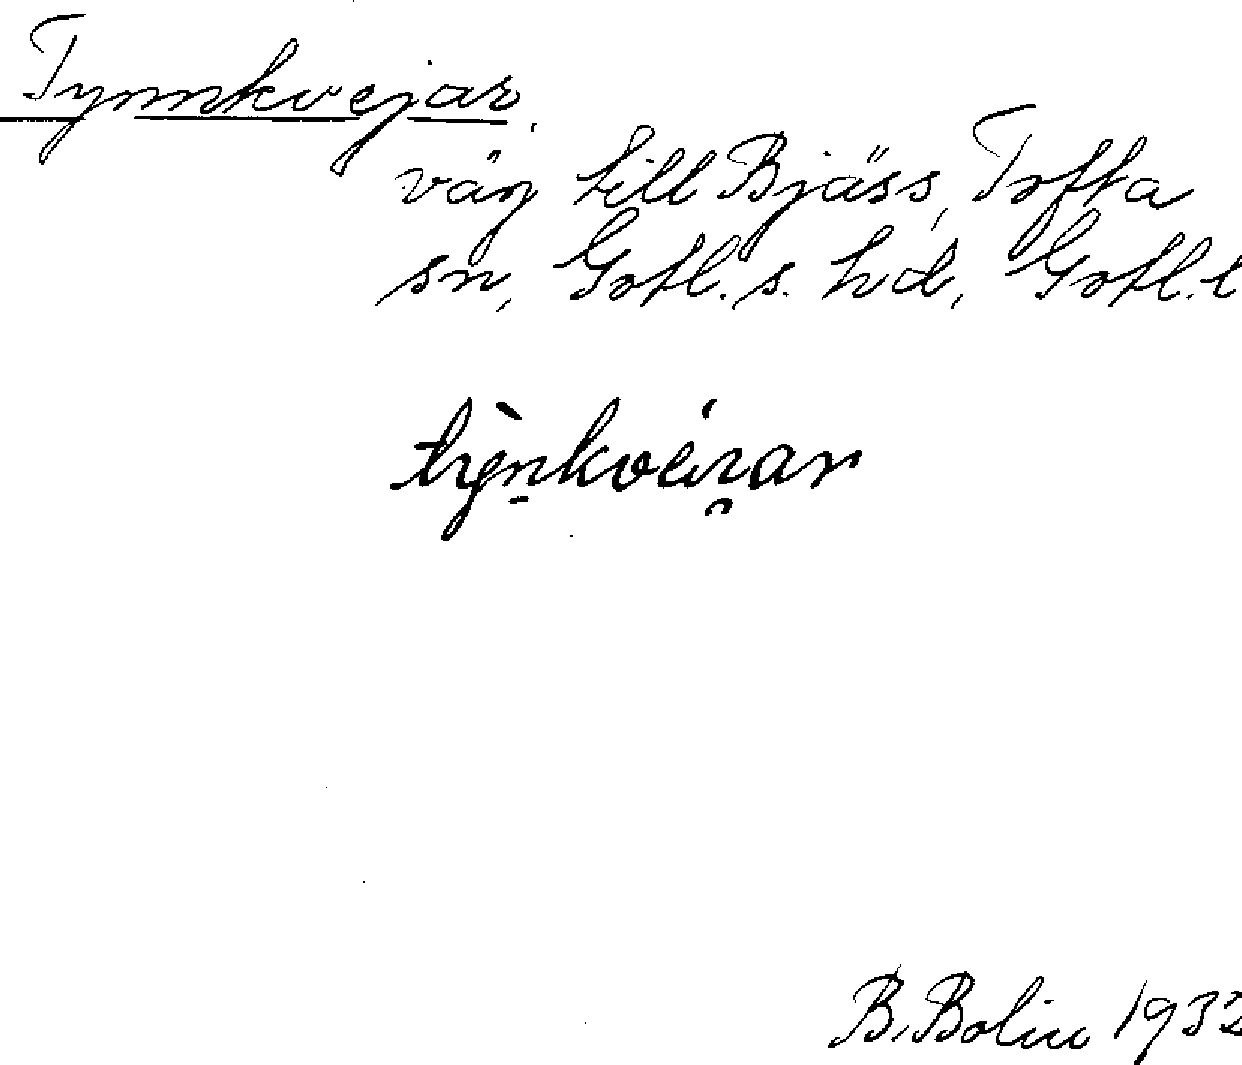 Tynnkvejar,
väg till Bjäss, Tofta
sn, Gotl. s. hd, Gotl. l
B. Bolin 1932